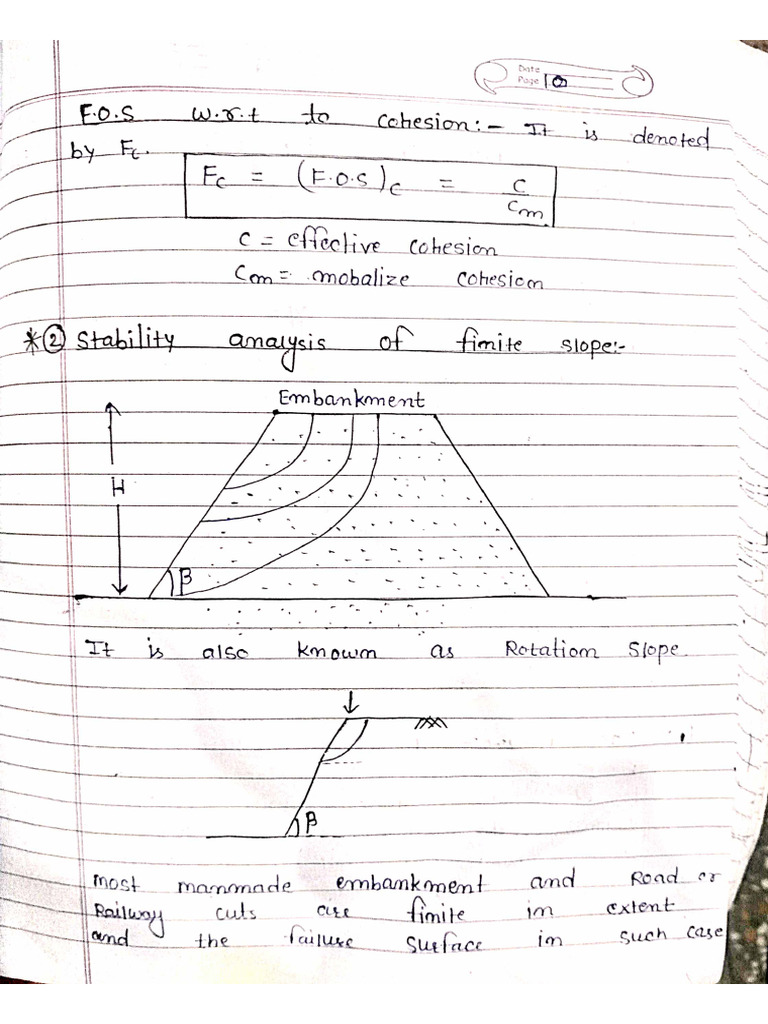 Date
Page 10
F.O.S w.r.t to cohesion:- It is denoted
by Fc.
Fc = (F.O.S)c = c/cm.
c = effective cohesion
Cm = mobalize cohesion
*② Stability analysis of finite slope:-
Embankment
H
β
It is also known as Rotation slope.
β
most manmade embankment and Road or
Railway cuts are finite in extent
and the failure surface in such case